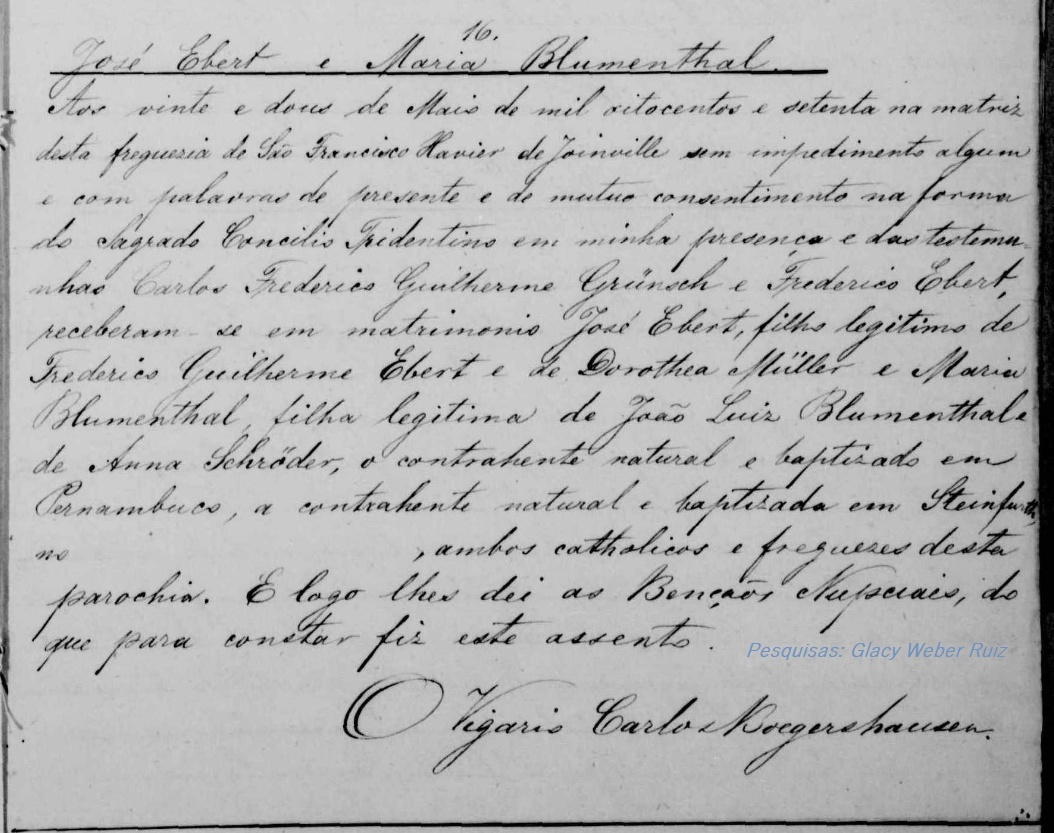 16.
José Ebert e Maria Blumenthal.
Aos vinte e dous de Maio de mil oitocentos e setenta na matriz
desta freguezia de São Francisco Xavier de Joinville sem impedimento algum
e com palavras de presente e de mutuo consentimento na forma
do Sagrado Concilio Tridentino em minha presença e das testemu-
nhas Carlos Frederico Guilherme Grünsch e Frederico Ebert,
receberam-se em matrimonio José Ebert, filho legitimo de
Frederico Guilherme Ebert e de Dorothea Müller e Maria
Blumenthal, filha legitima de João Luiz Blumenthal e
de Anna Schröder, o contrahente natural e baptizado em
Pernambuco, a contrahente natural e baptizada em Steinfurth,
no , ambos catholicos e freguezes desta
parochia. E logo lhes dei as Bençãos Nupciais, do
que para constar fiz este assento.
Pesquisas: Glacy Weber Ruiz
O Vigario Carlos Boegershausen.